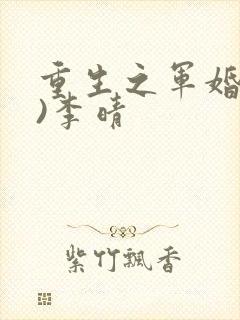 重生之军婚
)李晴
紫竹飘香